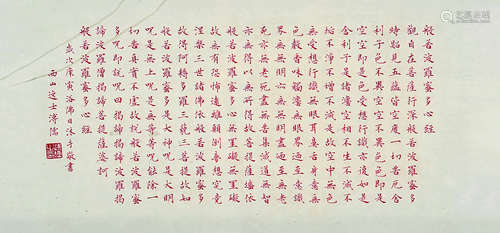 般若波羅蜜多心經
觀自在菩薩行深般若波羅蜜多
時照見五蘊皆空度一切苦厄舍
利子色不異空空不異色色即是
空空即是色受想行識亦復如是
舍利子是諸法空相不生不滅不
垢不淨不增不減是故空中無色
無受想行識無眼耳鼻舌身意無
色聲香味觸法無眼界乃至無意識
界無無明亦無無明盡乃至無老
死亦無老死盡無苦集滅道無智
亦無得以無所得故菩提薩埵依
般若波羅蜜多心無罣礙無罣礙
無有恐怖遠離顛倒夢想究竟
涅槃三世諸佛依般若波羅蜜多
故得阿耨多羅三藐三菩提故知
般若波羅蜜多是大神呪是大明
呪是無上呪是無等等呪能除一
切苦真實不虛故說般若波羅蜜
多呪即說呪曰揭諦揭諦波羅揭
諦波羅僧揭諦菩提薩婆訶
般若波羅蜜多心經
歲次庚寅浴佛日沐手敬書
西山逸士溥儒